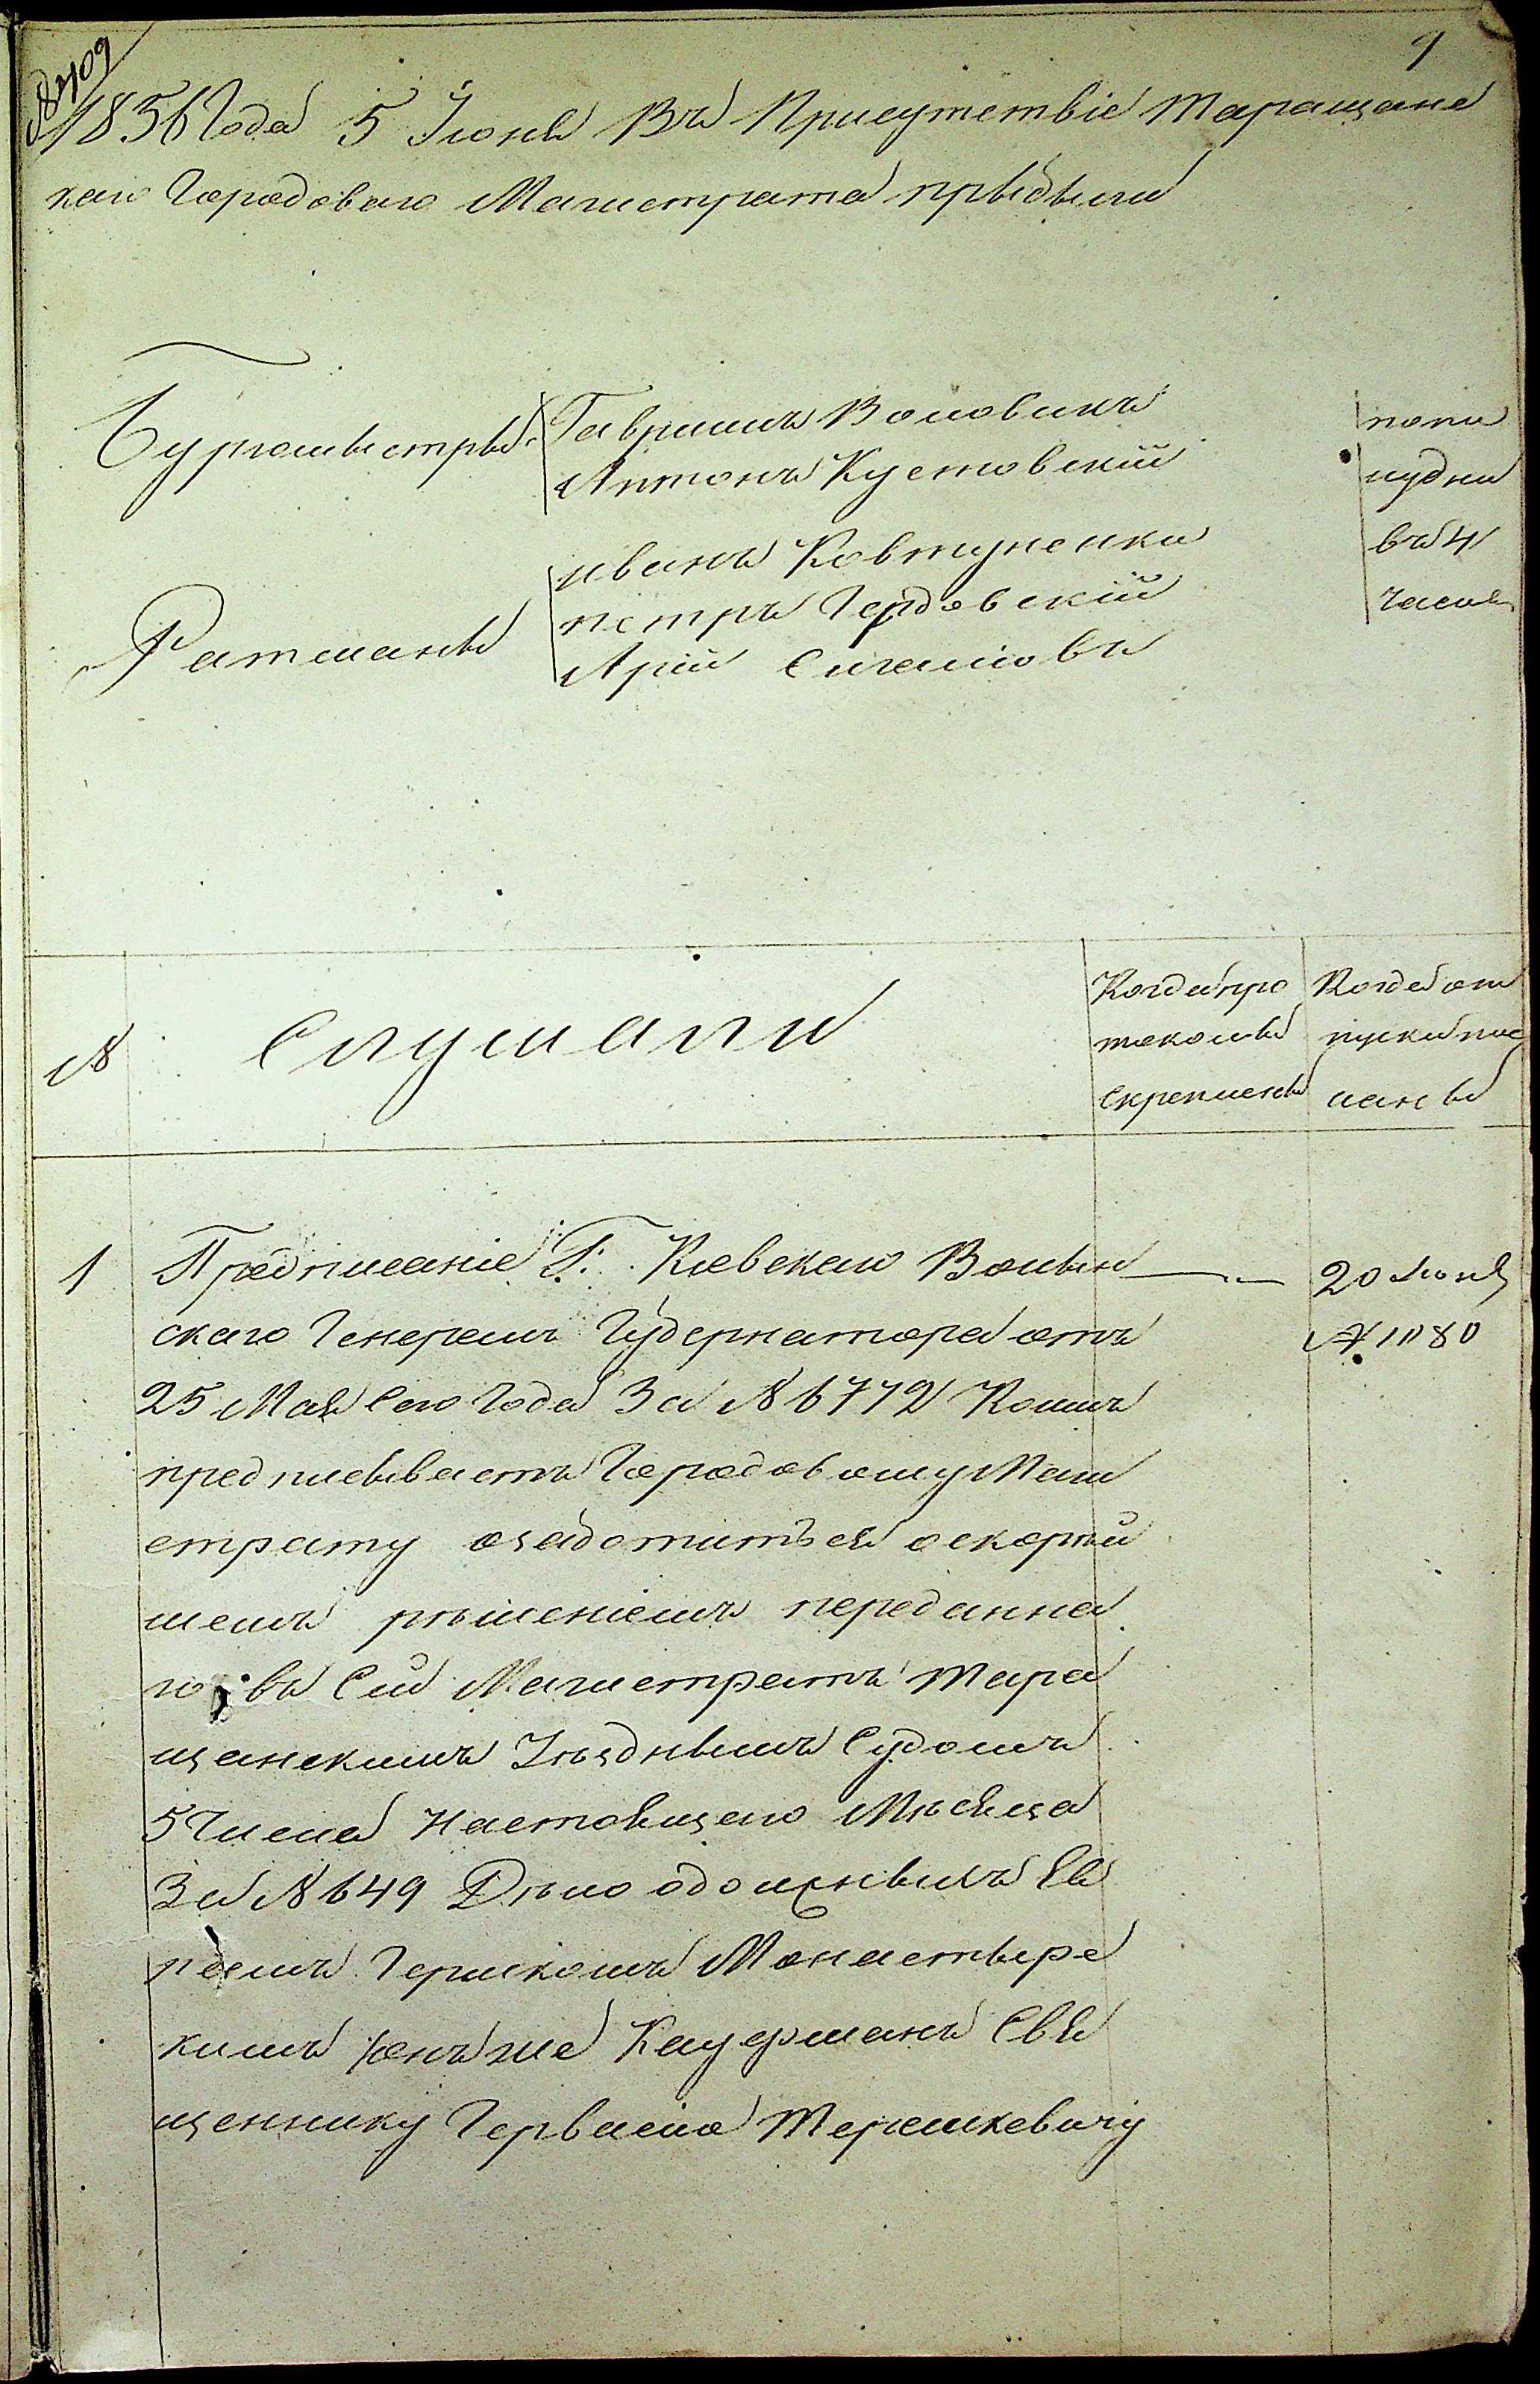 9
1856 Года 5 Июня Въ Присутствіе Таращанс
каго Городоваго Магистрата прибыли
Бургомистры
Гаврилъ Воловикъ
Антонъ Кустовскій
Ратманы
иванъ Ковтуненко
петръ Гердовскій
Арій
попо
лудни
въ 4
часа
№
Слушали
Когда про
токолы
скреплены
Когда от
пуски пос
ланы
1
Предписаніе Г. Кіевскаго Волын
скаго Генералъ Губернатора отъ
25 Мая Сего Года За № 6772 Коимъ
предписываетъ Городовому Маги
страту озаботиться о скорѣй
шемъ рѣшеніемъ передонна
го въ Сей Магистратъ Тара
щанскимъ Уѣзднымъ Судомъ
5 Числа Настоящаго Мѣсяца
За № 649 Дѣло одолжныхъ Ев
реемъ Гершкомъ Монастыре
кимъ онъ же Кауфманъ Свя
щеннику Гервасію Терешкевичу
20 Июня
№ 1180